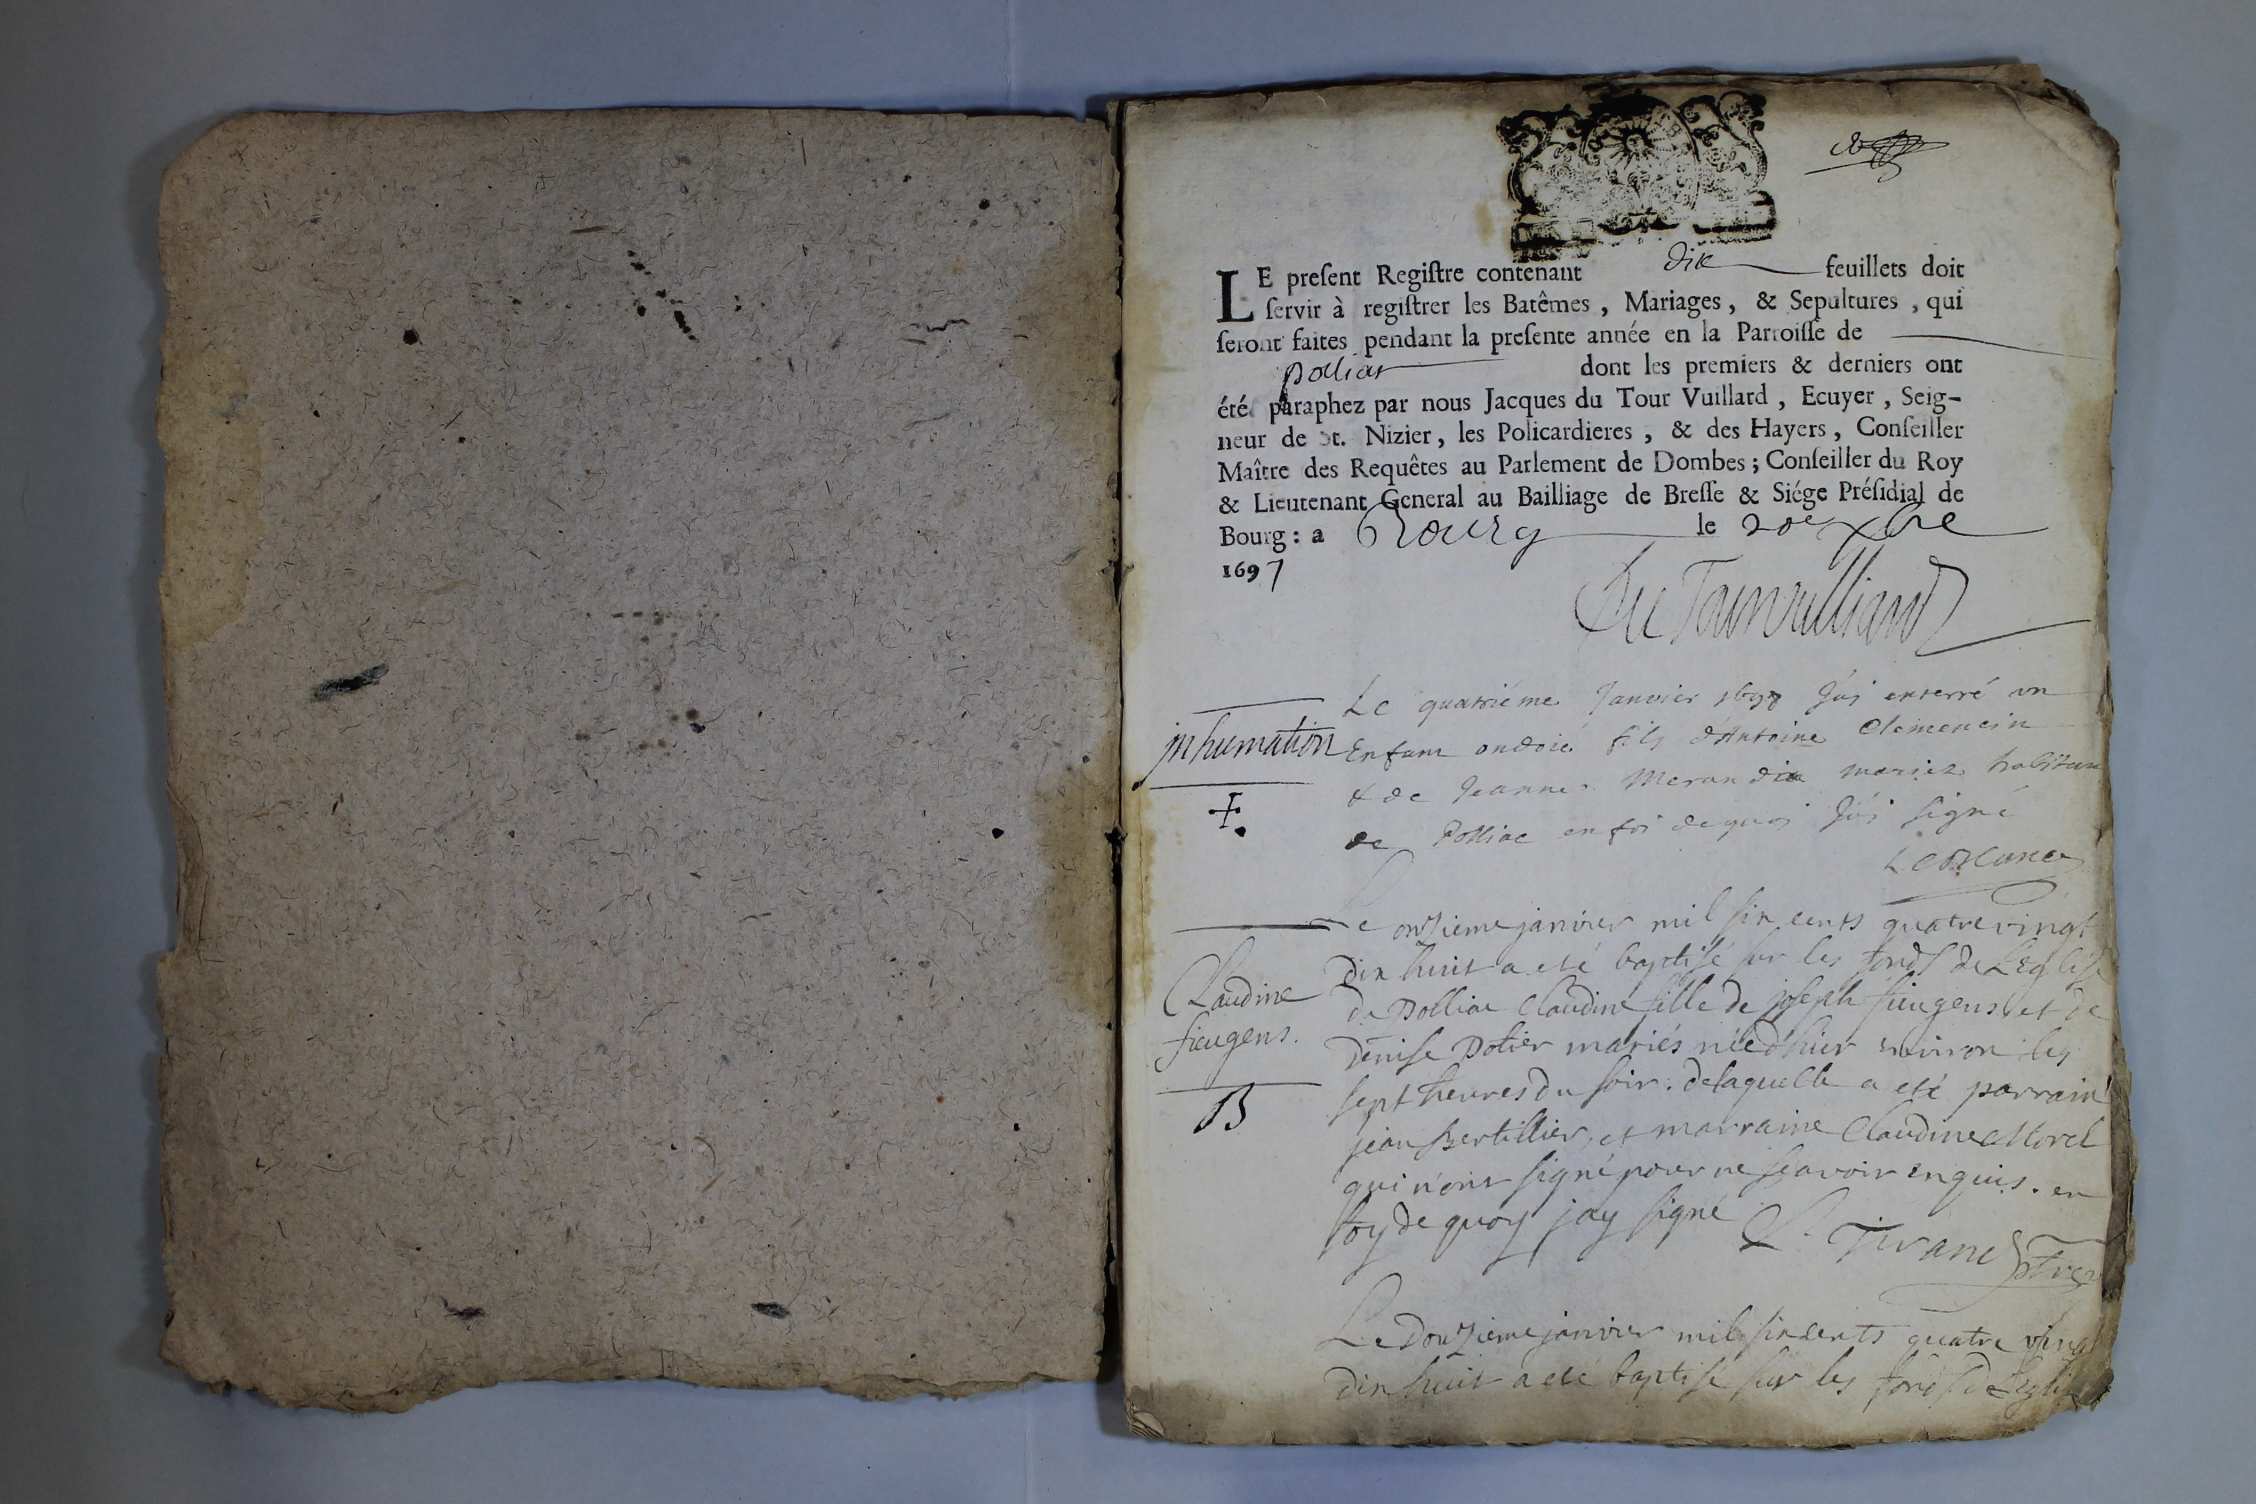 LE preſent Regiſtre contenant dix feuillets doit
ſervir à regiſtrer les Batêmes, Mariages, & Sepultures, qui
ſeront faites pendant la preſente année en la Parroiſſe de
polliat dont les premiers & derniers ont
été paraphez par nous Jacques du Tour Vuillard, Ecuyer, Seig-
neur de St. Nizier, les Policardieres, & des Hayers, Conſeiller
Maître des Requêtes au Parlement de Dombes; Conſeiller du Roy
& Lieutenant General au Bailliage de Breſſe & Siége Préſidial de
Bourg: a Bourg le 20e xbre
1697
Du Tourvuilliard
Le quatriéme Janvier 1698 J'ai enterré un
jnhumation
Enfant ondoié fils d'Antoine Clemencin
& de Jeanne mariez habitans
de Polliac en foi dequoi J'ai signé
Leblanc
Le onzieme janvier mil six cents quatrevingt
dix huit a eté baptisé sur les fonds de L'Eglise
Claudine
fieugens.
B
de Polliac Claudine fille de joseph fieugens et de
denise Potier mariés née d'hier environ les
sept heures du soir. de laquelle a eté parrain
jean Bertillier, et marraine Claudine Morel
qui n'ont signé pour ne sçavoir enquis. en
foy de quoy jay signé Tivane ptre
Le Douzieme janvier mil six cents quatre ving
dix huit a eté baptisé sur les fonds de L'eglise